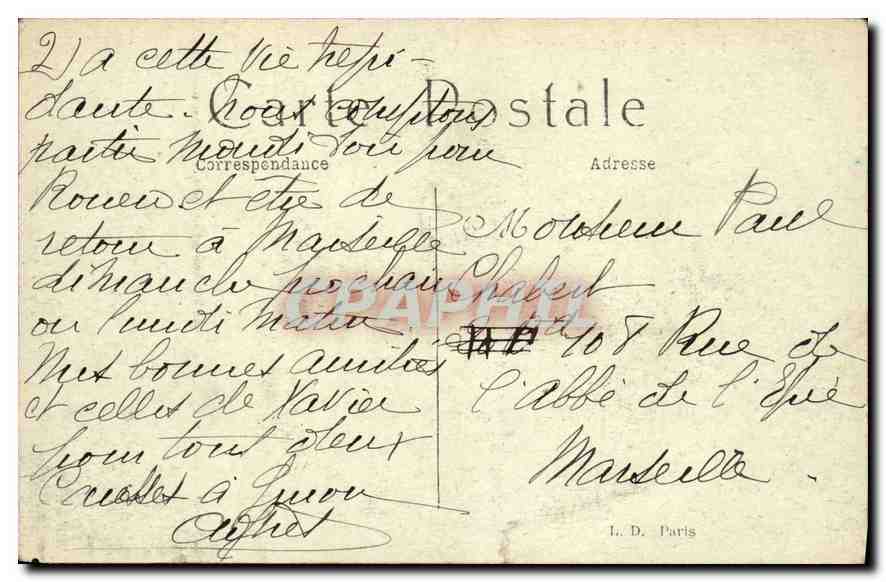 2) a cette vie trépi-
dante. nous comptons
Carte Postale
partir mardi soir pour
Correspondance
Adresse
Rouen et être de
retour à Marseille
dimanche prochain
ou lundi matin.
Mes bonnes amitiés
et celles de Xavier
pour tout deux
Caresses à
Agnès
Monsieur Paul
Chabert
108 Rue de
l'abbé de l'Epée
Marseille.
CPAPHIL
L. D. Paris